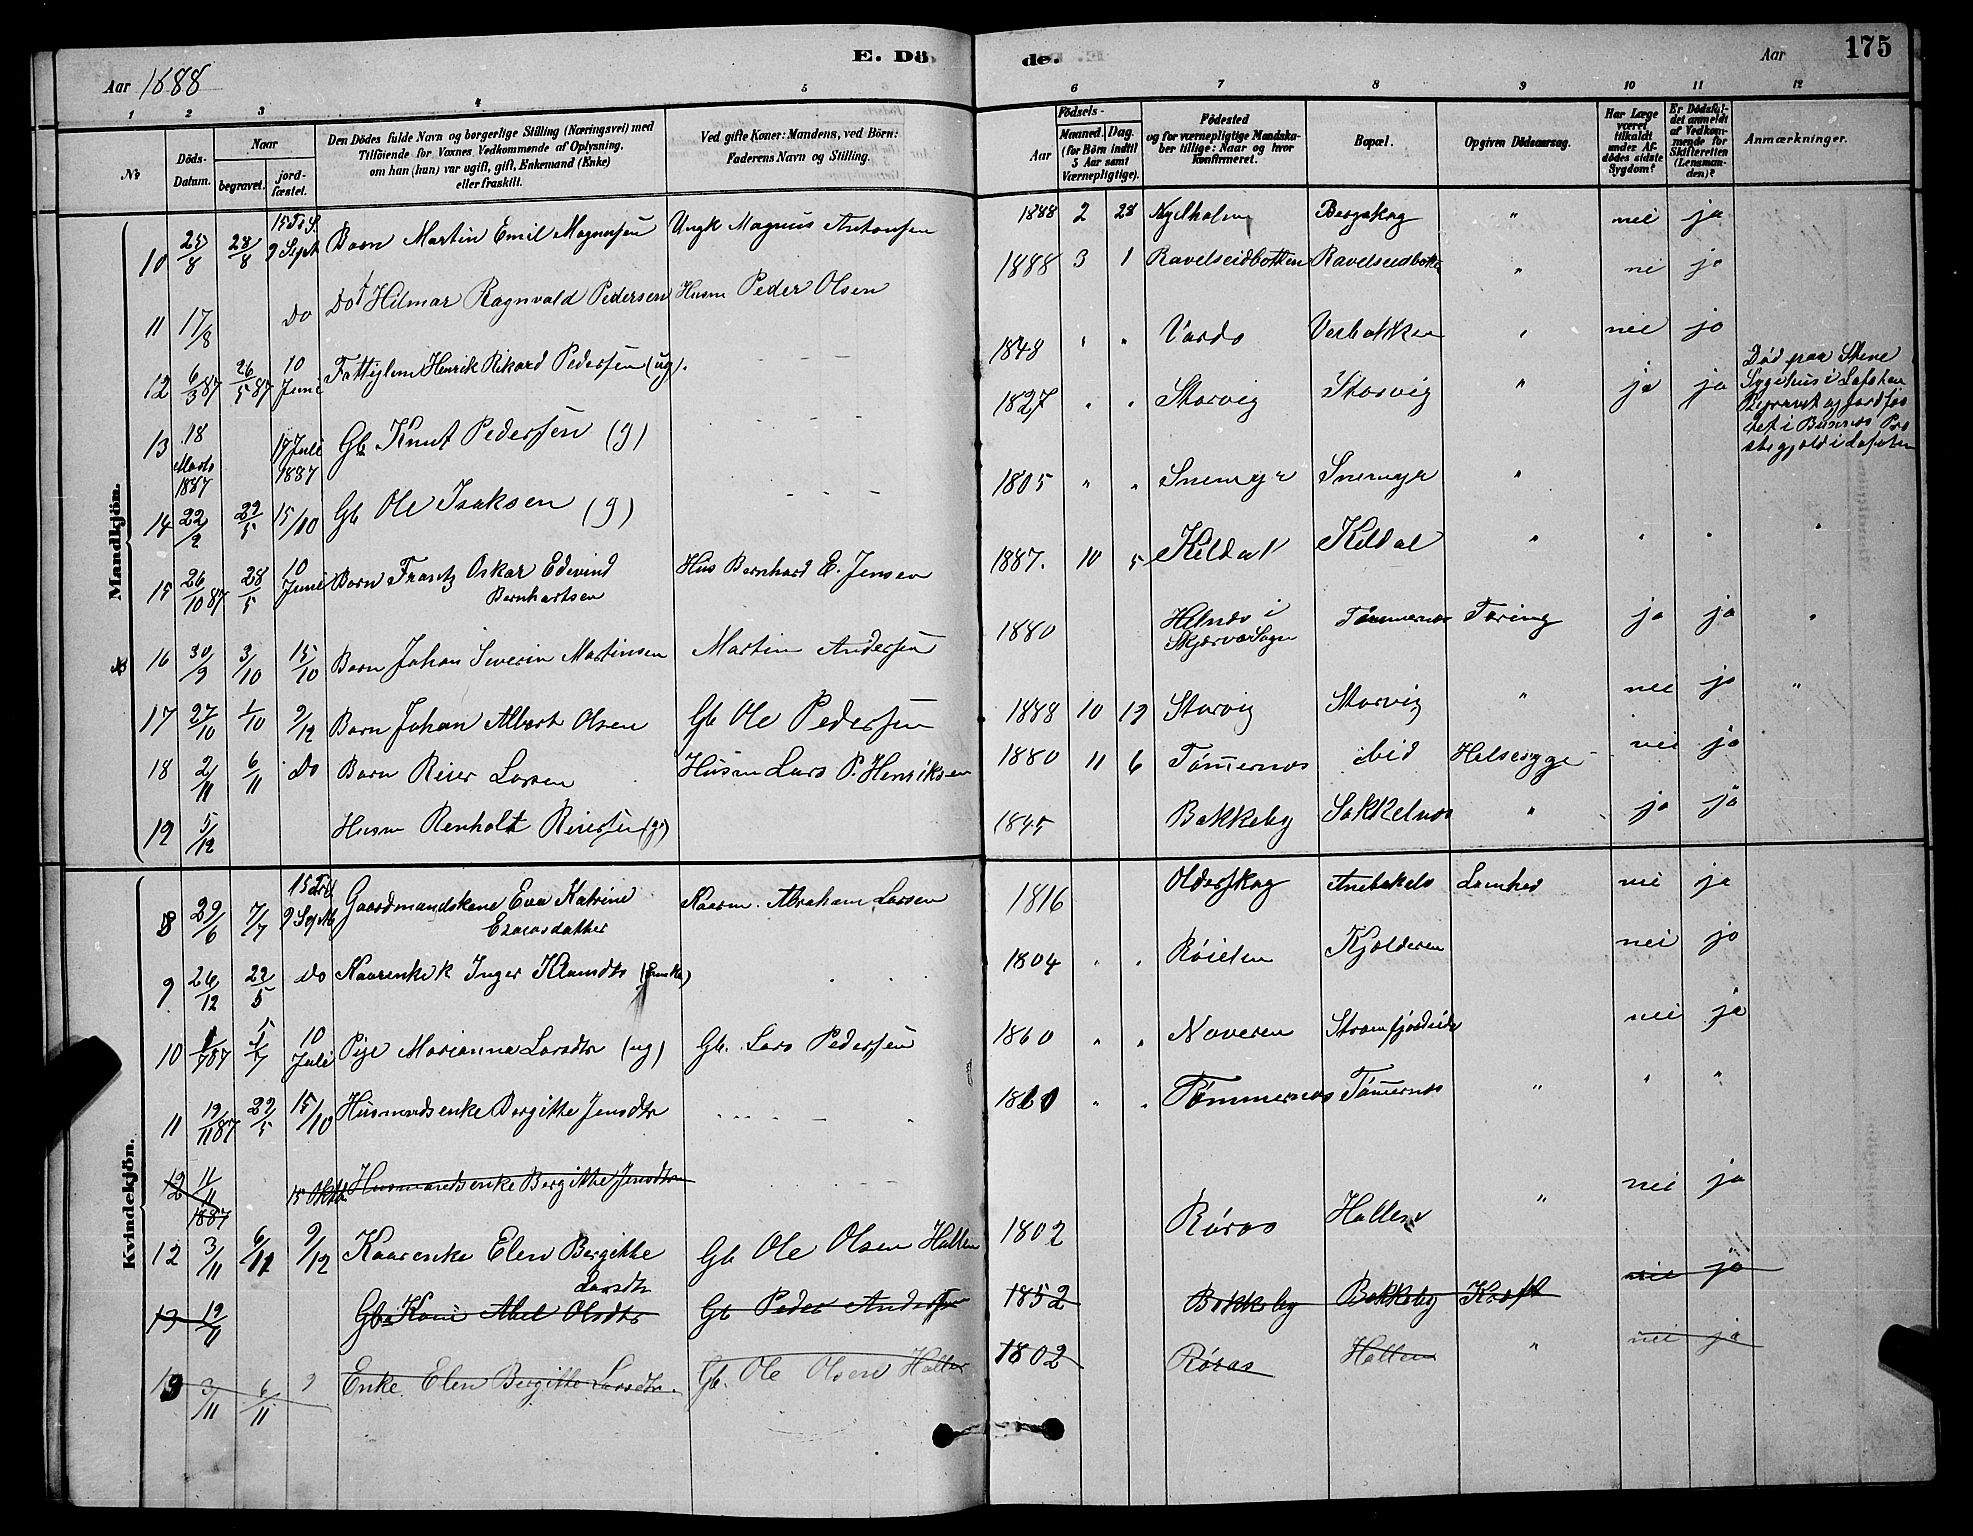 E. Dö
de.
175
Aar 1888
Aar
1 2 3 4 5 6 7 8 9 10 11 12
No
Döds-Datum.
Naar
begravet.
jord-fæstet.
Den Dödes fulde Navn og borgerlige Stilling (Næringsvei) med
Tilföiende for Voxnes Vedkommende af Oplysning,
om han (hun) var ugift, gift, Enkemand (Enke)
eller fraskilt.
Ved gifte Koner: Mandens, ved Börn:
Faderens Navn og Stilling.
Födsels-
Aar
Maaned. Dag.
(for Börn indtil
5 Aar samt
Værnepligtige).
Födested
og for værnepligtige Mandska-
ber tillige: Naar og hvor
konfirmeret.
Bopæl.
Opgiven Dödsaarsag.
Har Læge
været
tilkaldt
under Af-
dödes sidste
Sygdom?
Er Dödsfal-
det anmeldt
af Vedkom-
mende for
Skifteretten
(Lensman-
den)?
Anmærkninger.
Mandkjön.
10 25/8 28/8 9 Sept Barn Martin Emil Magnusen Ungk Magnus Antonsen 1888 2 28 Bergskog " nei ja
11 17/8 Do Do Hilmar Ragnvald Pedersen Husm Peder Olsen 1888 3 1 Ravelseidbotten Ravelseidbotten " nei ja
12 6/3 87 26/5 87 10 Juni Henrik Rikard Pedersen (ug). 1848 " " Vardø " nei ja
13 18 Marts 1887 17 Juli 1887 Gb Knut Pedersen (g) 1827 " " Storvig Storvig " ja ja
Død paa Stene
Sygehus i Lofoten
Begravet og jordfæs
tet i Buksnes Præ
stegjeld i Lofoten
14 22/2 22/5 15/10 Gb Ole Isaksen (g) 1805 " " Snemyr Snemyr "
15 26/10 87 28/5 10 Juni Barn Frantz Oskar Edevind
Bernhartsen Hus Bernhard E. Jensen 1887. 10 5 Kildal Kildal " " " "
16 30/9 3/10 15/10 Barn Johan Severin Martinsen Martin Andersen 1880 i
Skjervø Sogn Tømmernes Tæring ja ja "
17 27/10 1/10 9/12 Barn Johan Albert Olsen Gb Ole Pedersen 1888 10 12 Storvig Storvig " nei ja "
18 2/11 6/11 Do Barn Reier Larsen Husm Lars P. Henriksen 1880 11 6 Tømernes ibid Halsesyge nei ja
19 5/12 Husm Renholt Reiersen (g) 1845 Bakkeby Sakkelnes " ja ja
Kvindekjön.
8 29/6 7/7 9 Sept Gaardmandskone Eva Katrine
Esaiasdatter Kaarm. Abraham Larsen 1816 Olderskog Lamhed nei ja
9 26/12 22/5 Do Inger (Enke) 1804 " " Kjølderen nei ja
10 87 10 Juli Pige Marianna Larsdtr (ug) Gb. Lars Pedersen 1860 " " Naveren nei ja
11 19/11 87 22/5 15/10 Husmandsenke Bergitte Jensdtr " " Tømmernes Tømernes " " "
12 11/11 1887 15 Oktb. Husmandsenke Bergitte Jensdtr
12 3/11 6/11 9/12 Kaarenke Elen Bergitte
Larsdtr Gb Ole Olsen Hallen 1802 Røros Hallen " nei ja
13 19/11 Abel Olsdtr Gb Peder Andersen 1852 Bakkeby Bakkeby Kræft nei ja
13 3/11 6/11 9 Enke Elen Bergitte Larsdtr. Gb. Ole Olsen Hallen 1802 Røros Hallen " nei ja